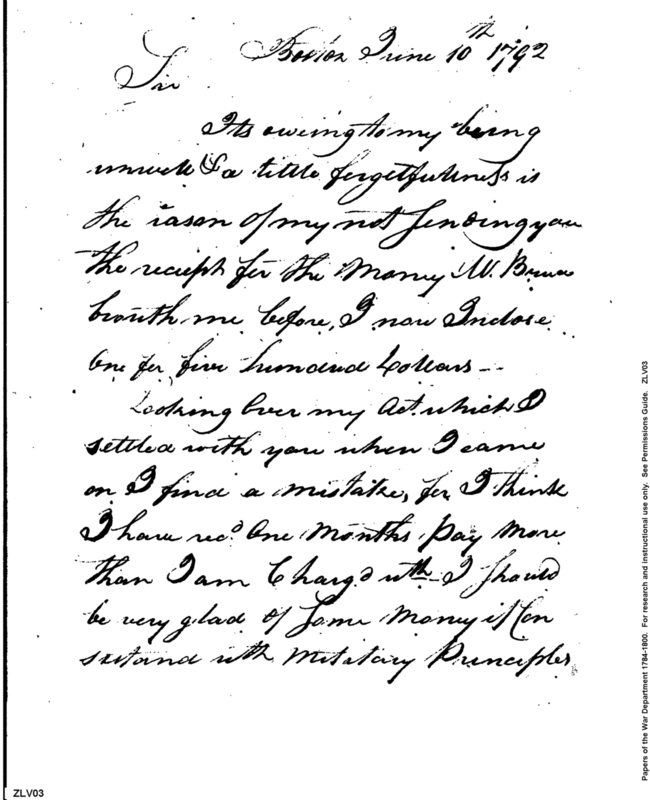 Boston June 10th 1792
Sir
Its oweing to my being
unwell & a little forgetfullness is
the reason of my not Sending you
the reciept for the Money W. Brown
brouth me before, I now Inclose
One for five hundred Dollars --
Looking Over my Act. which I
settled with you when I came
on I find a mistake, for I think
I have recd One Months Pay More
than I am Chargd with I Should
be very glad of Some Money if Con
sistand with Militarry Principles
Papers of the War Department 1784-1800. For research and instructional use only. See Permissions Guide. ZLV03
ZLV03